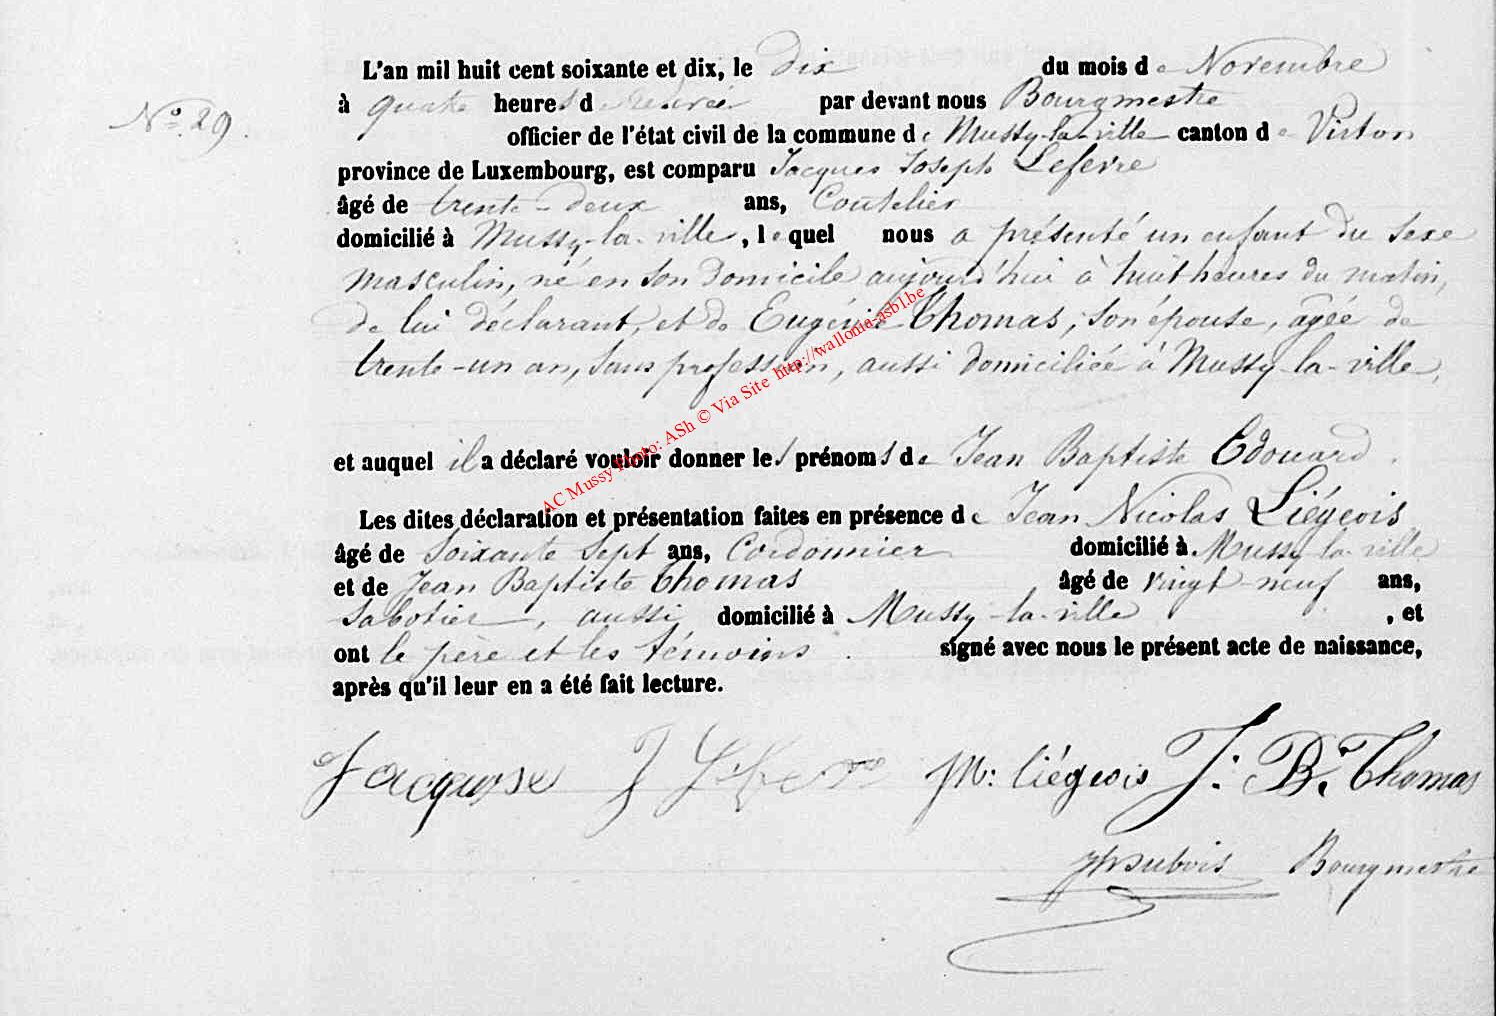 L'an mil huit cent soixante et dix, le dix du mois de Novembre
N° 29. à quatre heures de relevée par devant nous Bourgmestre
officier de l'état civil de la commune de Mussy-la-ville canton de Virton
province de Luxembourg, est comparu Jacques Joseph Lefevre
âgé de trente-deux ans, Coutelier
domicilié à Mussy-la-ville, lequel nous a présenté un enfant du sexe
masculin, né en son domicile aujourd'hui à huit heures du matin,
de lui déclarant, et de Eugénie Thomas, son épouse, agée de
trente-un an, sans profession, aussi domiciliée à Mussy-la-ville,
et auquel il a déclaré vouloir donner les prénoms de Jean Baptiste Edouard.
Les dites déclaration et présentation faites en présence de Jean Nicolas Liégeois
âgé de soixante sept ans, Cordonnier domicilié à Mussy-la-ville
et de Jean Baptiste Thomas âgé de vingt-neuf ans,
Sabotier, aussi domicilié à Mussy-la-ville, et
ont le père et les témoins. signé avec nous le présent acte de naissance,
après qu'il leur en a été fait lecture.
Jacquese J Lefevre JN: Liégeois J. B. Thomas
Dubois Bourgmestre
AC Mussy Photo: ASh © Via Site http://wallonia-asbl.be